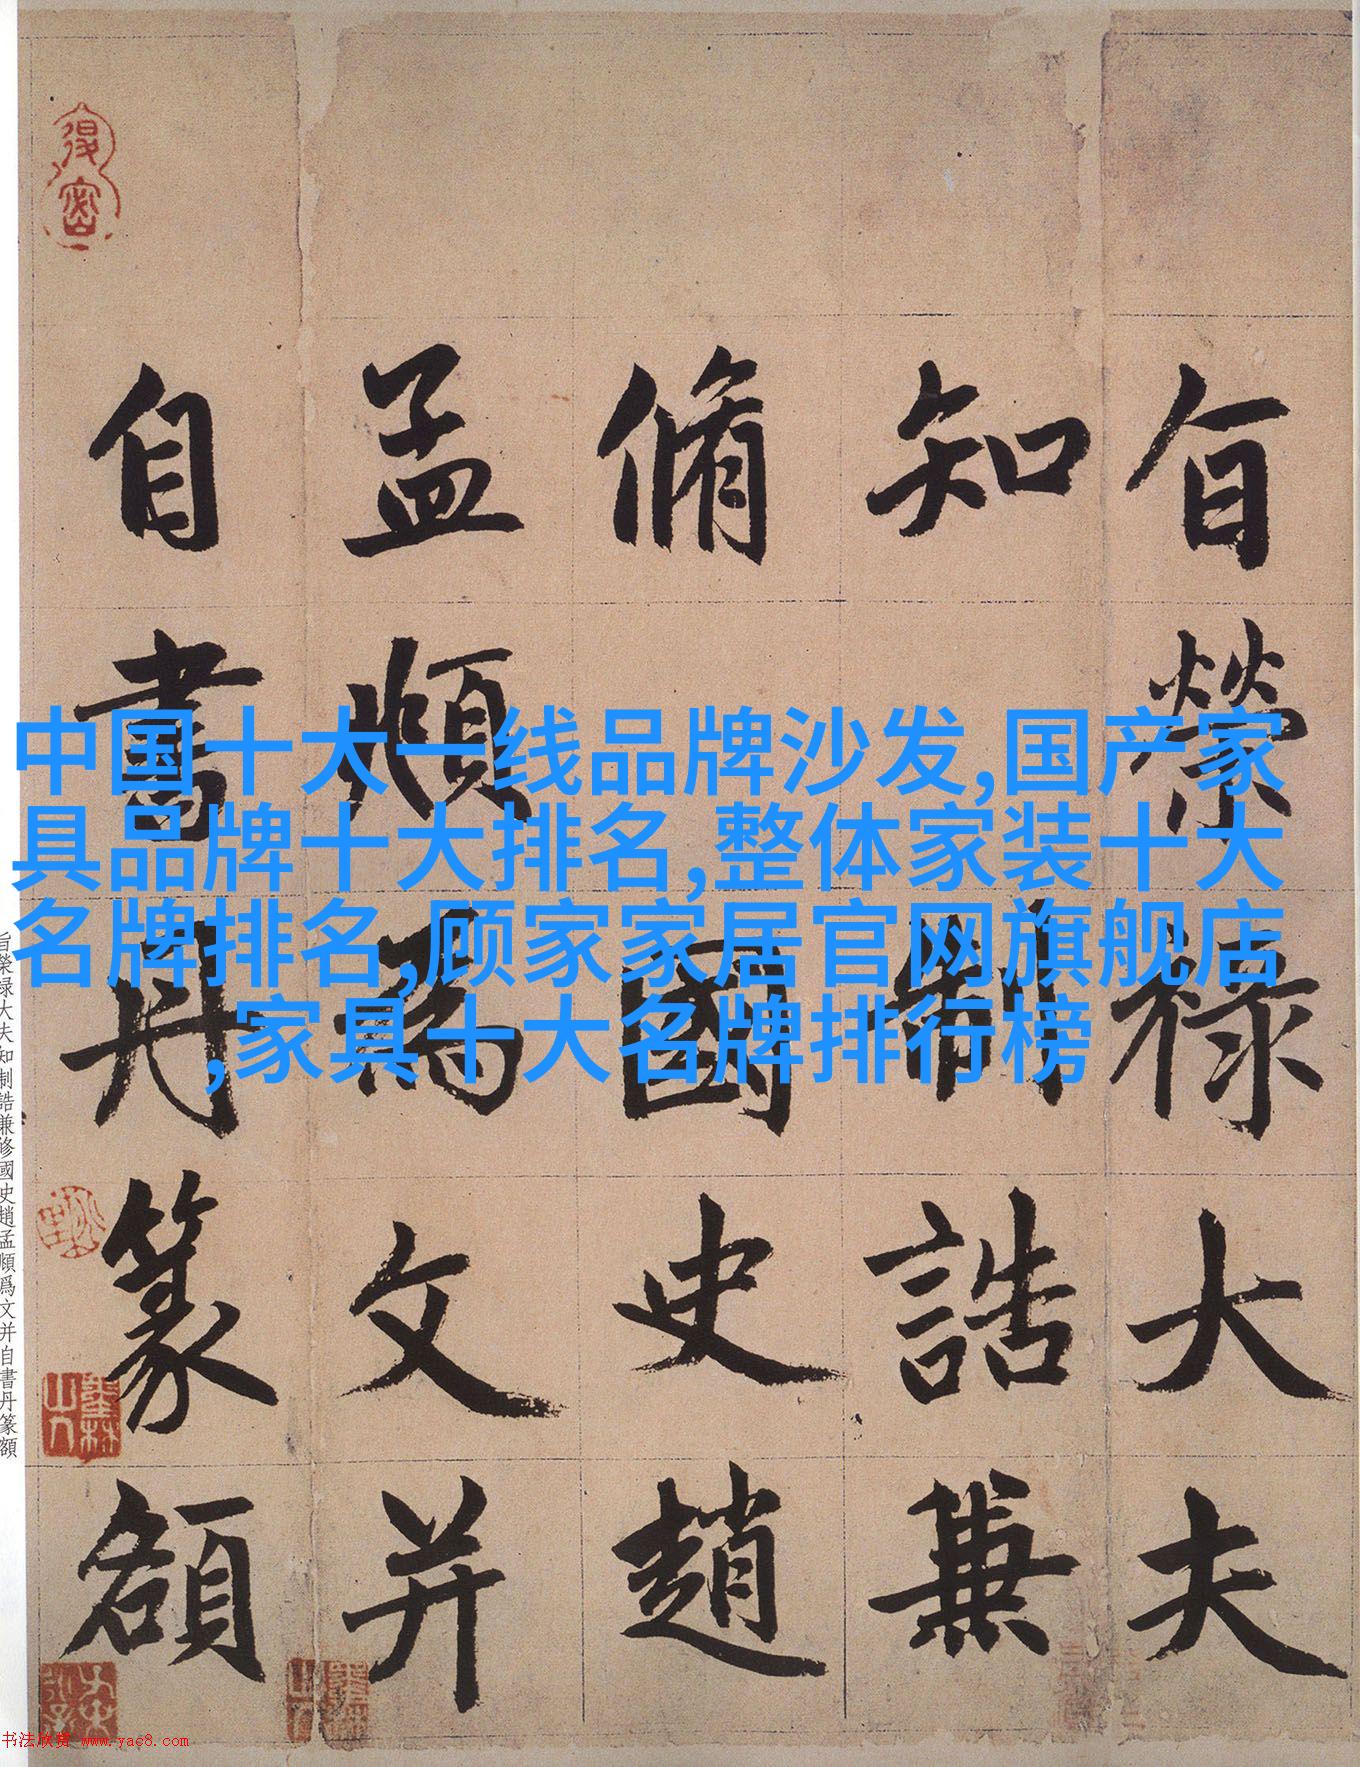 旨榮祿大夫
知制誥兼
脩國史趙
孟頫爲文并
自書丹篆額
中国十大一线品牌沙发,国产家
具品牌十大排名,整体家装十大
名牌排名,顾家家居官网旗舰店
,家具十大名牌排行榜
旨榮禄大夫知制誥兼修國史趙孟頫爲文并自書丹篆額
书法欣赏 www.yac8.com